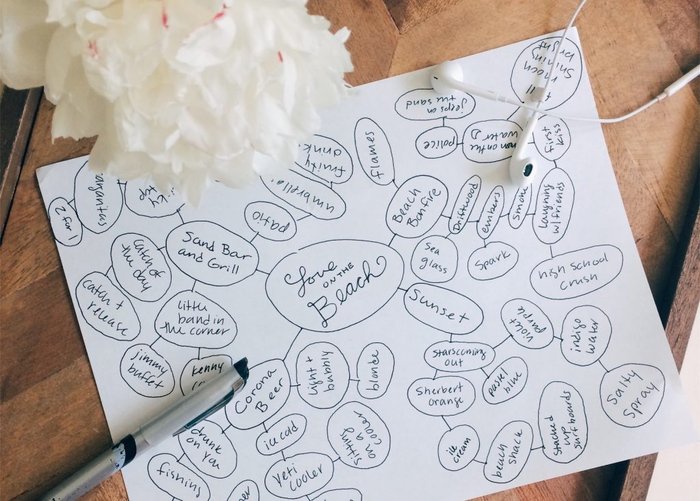 Love
ON THE
Beach
Sand Bar
and Grill
patio
umbrella
fruity
drink
2 for 1
catch of
the day
catch +
release
little
band in
the corner
jimmy
buffet
kenny
Corona
Beer
light +
bubbly
blonde
ice cold
yeti
cooler
sitting
on a
cooler
drunk
on you
fishing
Beach
Bonfire
flames
Driftwood
embers
smoke
Sea
glass
spark
police
Jeeps on
the sand
water
shining
bright
first
kiss
laughing
w/friends
high school
crush
Sunset
stars coming
out
violet
purple
pastel
blue
indigo
water
salty
spray
Sherbert
orange
ice
cream
beach
shack
stacked
up
surfboards